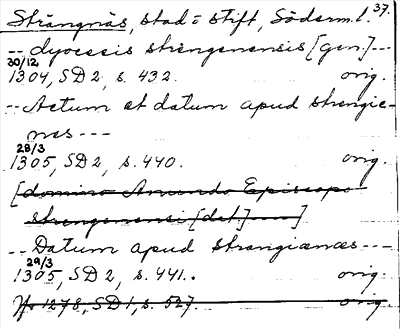 Strängnäs, stad o stift, Söderm. l. 37.
-- dyocesis strengenensis [gen.] ---
30/12
1304, SD 2, s. 432. orig.
-- Actum et datum apud strengie-
nes ---
28/3
1305, SD 2, s. 440. orig.
[domino Amundo Episcopo
strengenensi [dat.] ----]
-- Datum apud strangianæs ---
29/3
1305, SD 2, s. 441. orig.
1278, SD 1, s. 527. orig.